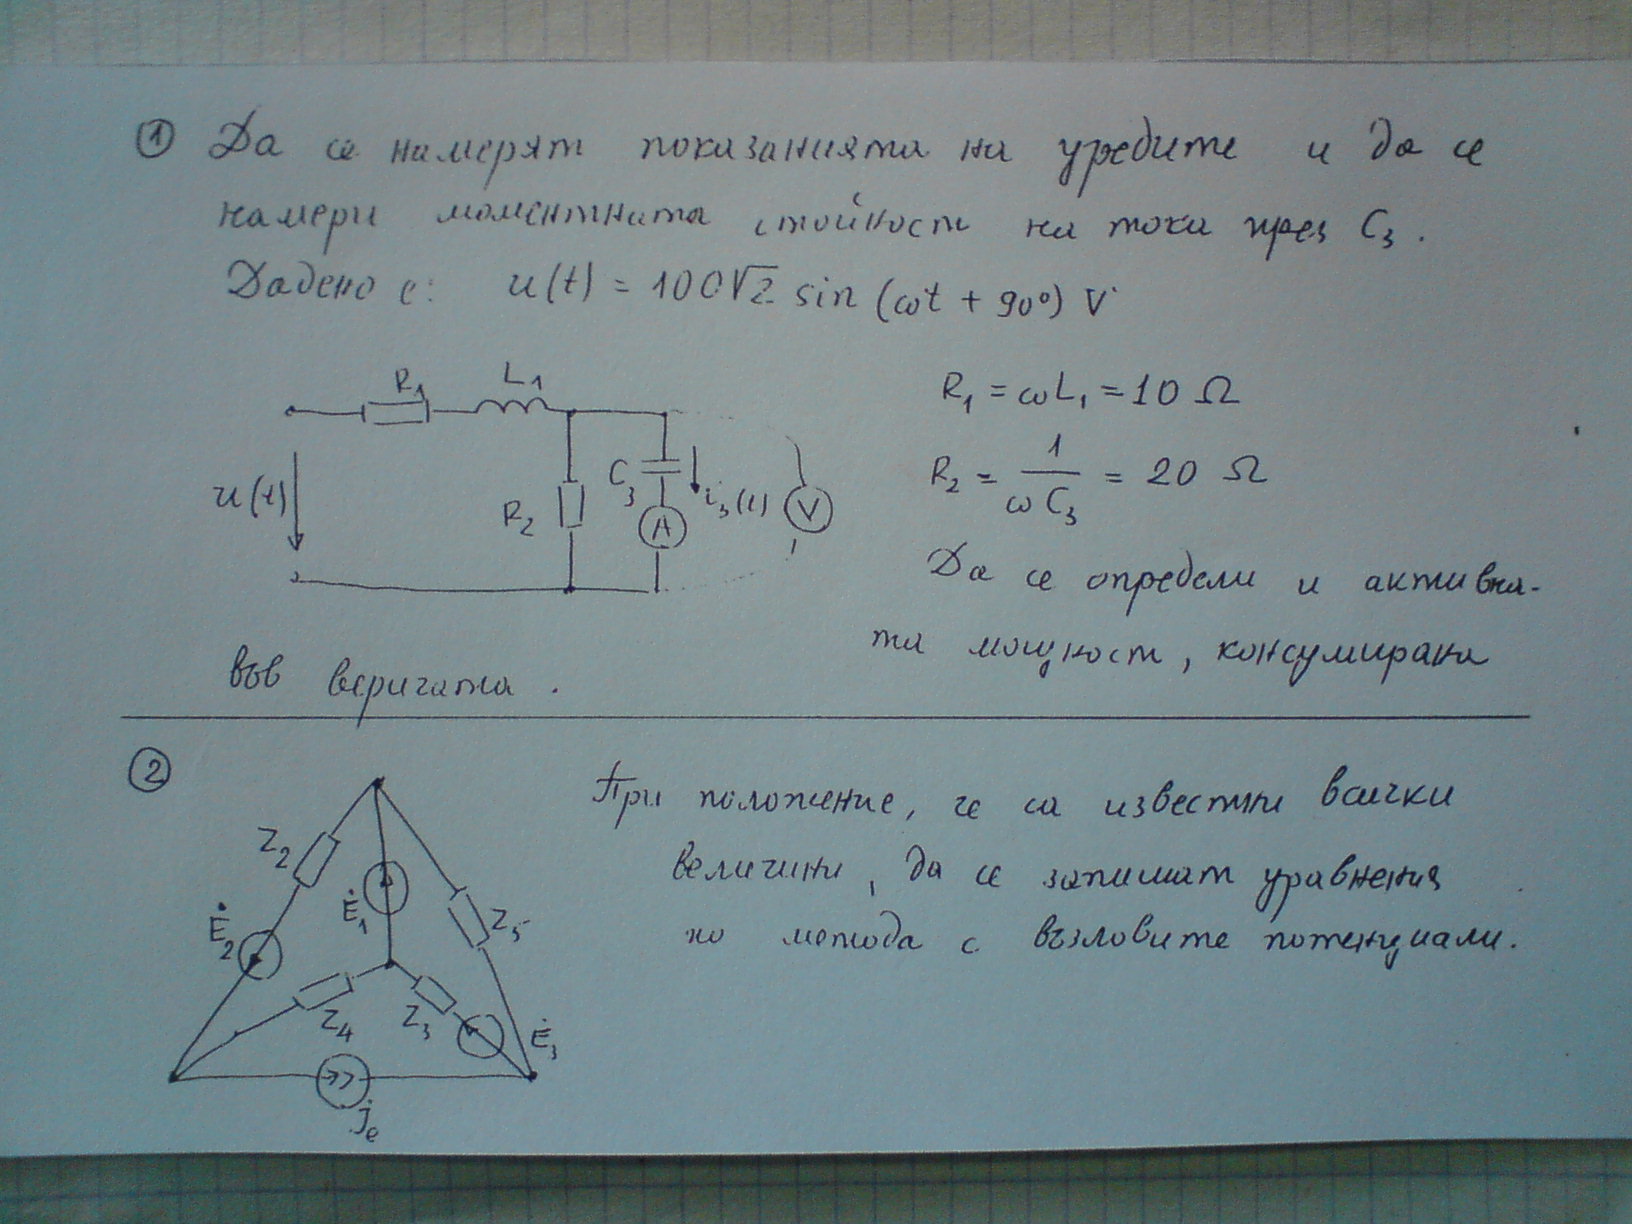 ① Да се намерят показанията на уредите и да се
намери моментната стойност на тока през C₃.
Дадено е: u(t) = 100√2 sin (ωt + 90°) V
R₁ L₁
R₁ = ωL₁ = 10 Ω
u(t) R₂ C₃ A i₃(t) V
R₂ = 1/(ωC₃) = 20 Ω
Да се определи и активна-
та мощност, консумирана
във веригата.
② При положение, че са известни всички
величини, да се запишат уравнения
по метода с възловите потенциали.
Z₂
Ė₂ Ė₁ Z₅
Z₄ Z₃ Ė₃
J̇e